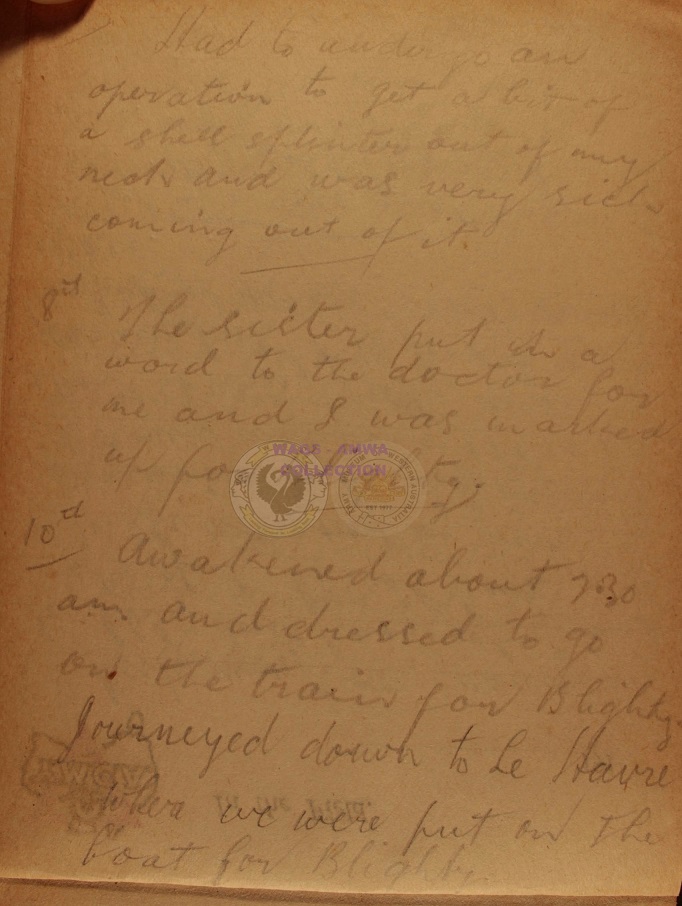 Had to undergo an
operation to get a bit of
a shell splinter out of my
neck and was very sick
coming out of it.
8th
The sister put in a
word to the doctor for
me and I was marked
up for Blighty.
10th
Awakened about 7.30
am. and dressed to go
on the train for Blighty.
Journeyed down to Le Havre
when we were put on the
boat for Blighty.
WAGS - AMWA
COLLECTION
In the Field.